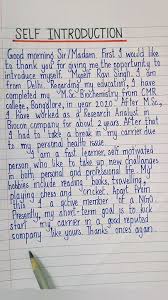 SELF INTRODUCTION
Good morning Sir/Madam. First I would like
to thank you for giving me the opportunity to
introduce myself. Myself Ravi Singh, I am
from Delhi. Regarding my education, I have
completed my "M.Sc" Biochemistry from CMR
college, Bangalore, in year 2020. After M.Sc.,
I have worked as a Research Analyst in
Biocon company for about 2 years. After that
I had to take a break in my carrier due
to my personal health issue.
I am a fast learner, self motivated
person, who like to take up new challenges
in both personal and professional life. My
hobbies include reading books, travelling,
playing chess and cricket. Apart from
this I a active member of a NGO.
Presently, my short-term goal is to kick
start my carrier in a good reputed
company like yours. Thanks once again.